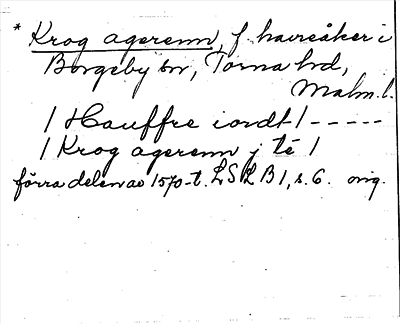 * Krog agerenn, f. havreåker i
Borgeby sn, Torna hd,
Malm. l.
/ Hauffre iordt / - - - - -
/ Krog agerenn j té /
förra delen av 1570-t. LSLB 1, s. 6. orig.